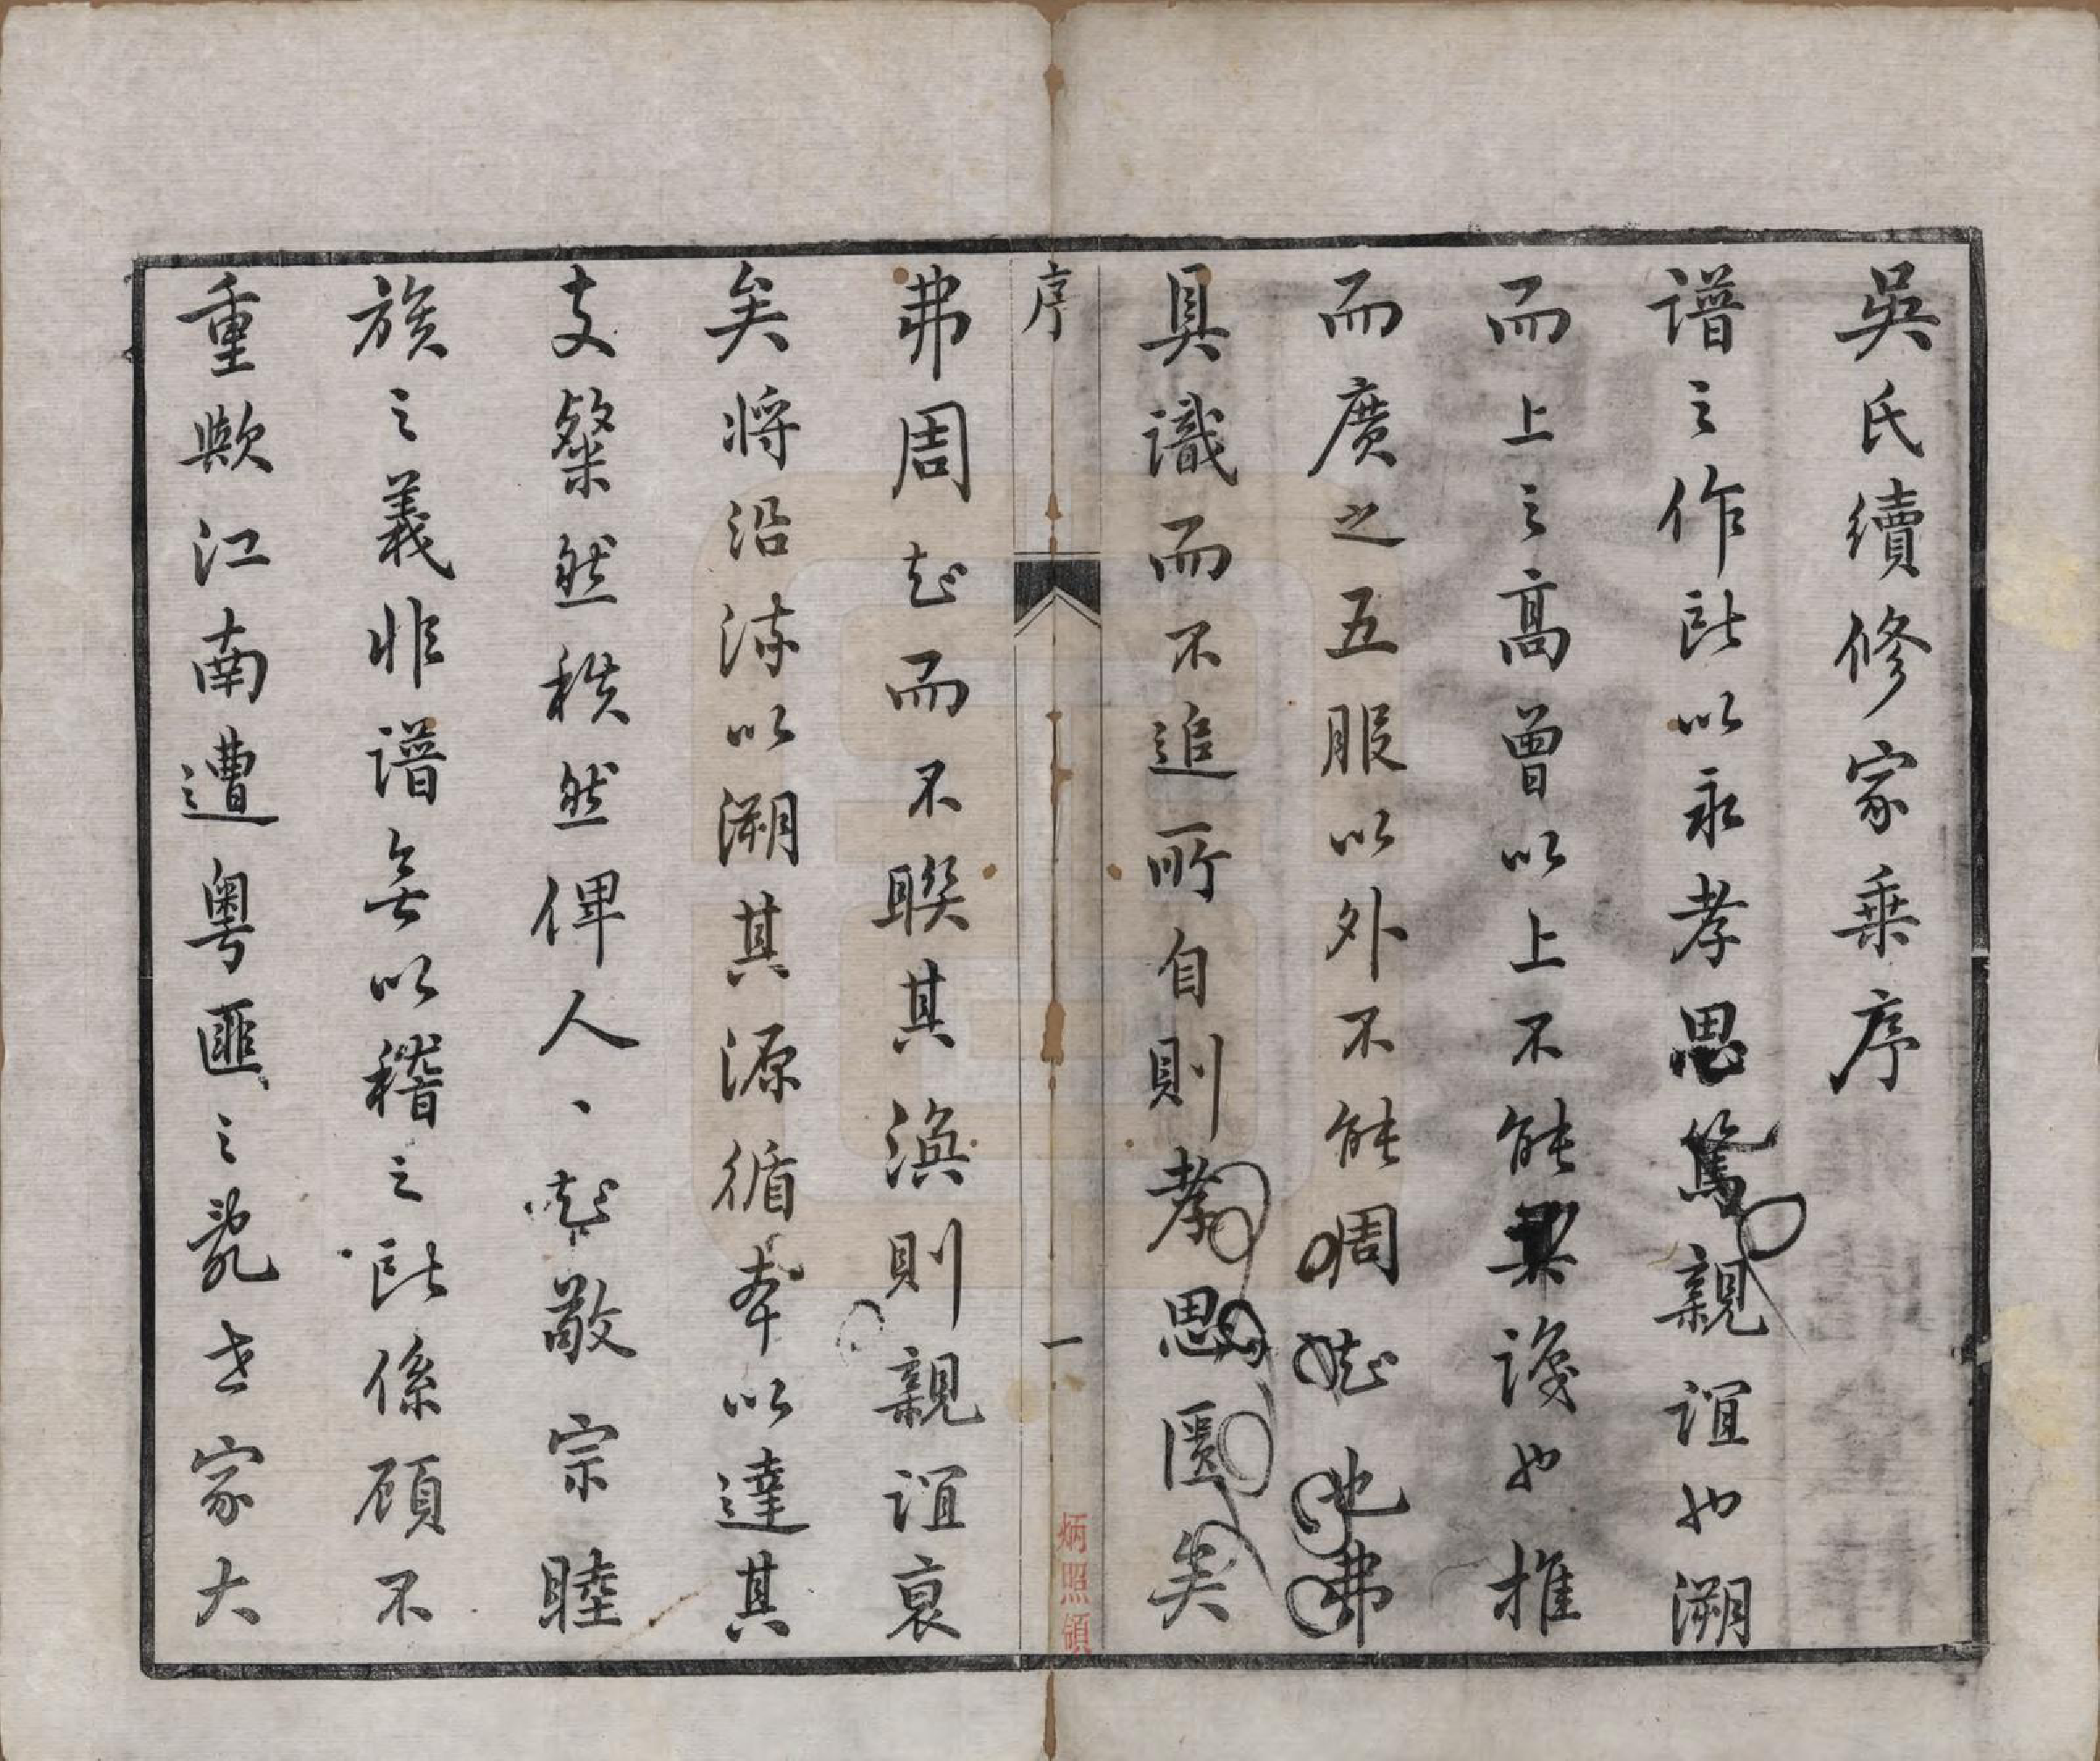 吳氏續修家乘序
譜之作所以永孝思篤親誼也溯
而上之高曾以上不能具識也推
而廣之五服以外不能周知也弗
具識而不追所自則孝思匱矣
序
一
炳照領
弗周知而不聯其渙則親誼衰
矣將沿流以溯其源循本以達其
支粲然秩然俾人、知敬宗睦
族之義非譜無以稽之所係顧不
重歟江南遭粵匪之亂世家大